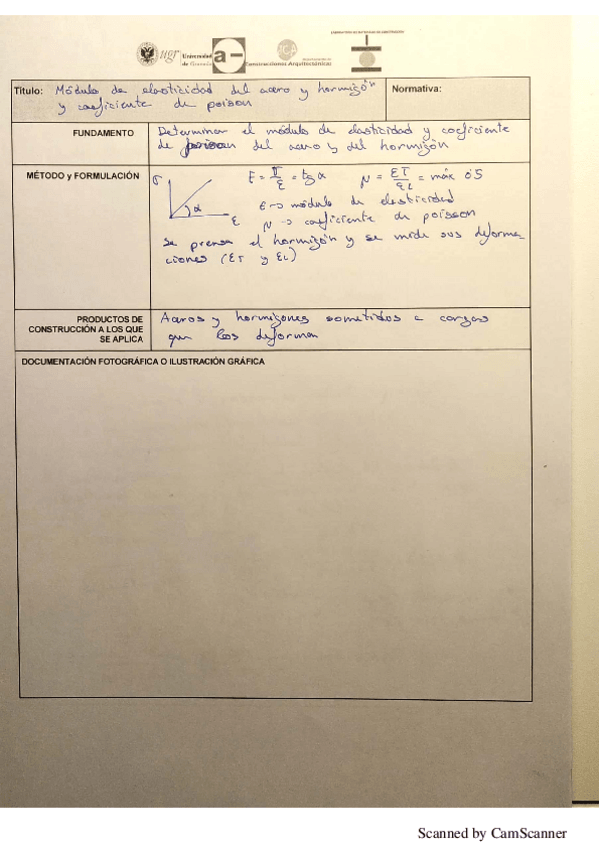 LABORATORIO DE MATERIALES DE CONSTRUCCIÓN
ugr Universidad de Granada
a-
CA
Construcciones Arquitectónicas
Título: Módulo de elasticidad del acero y hormigón
y coeficiente de poison
Normativa:
FUNDAMENTO
Determinar el módulo de elasticidad y coeficiente
de poison del acero y del hormigón
MÉTODO y FORMULACIÓN
σ
α
ε
E = σ/ε = tg α
μ = ετ/εL = máx 0'5
E → módulo de elasticidad
μ → coeficiente de poisson
Se prensa el hormigón y se mide sus deforma
ciones (ετ y εL)
PRODUCTOS DE
CONSTRUCCIÓN A LOS QUE
SE APLICA
Aceros y hormigones sometidos a cargas
que los deforman
DOCUMENTACIÓN FOTOGRÁFICA O ILUSTRACIÓN GRÁFICA
Scanned by CamScanner